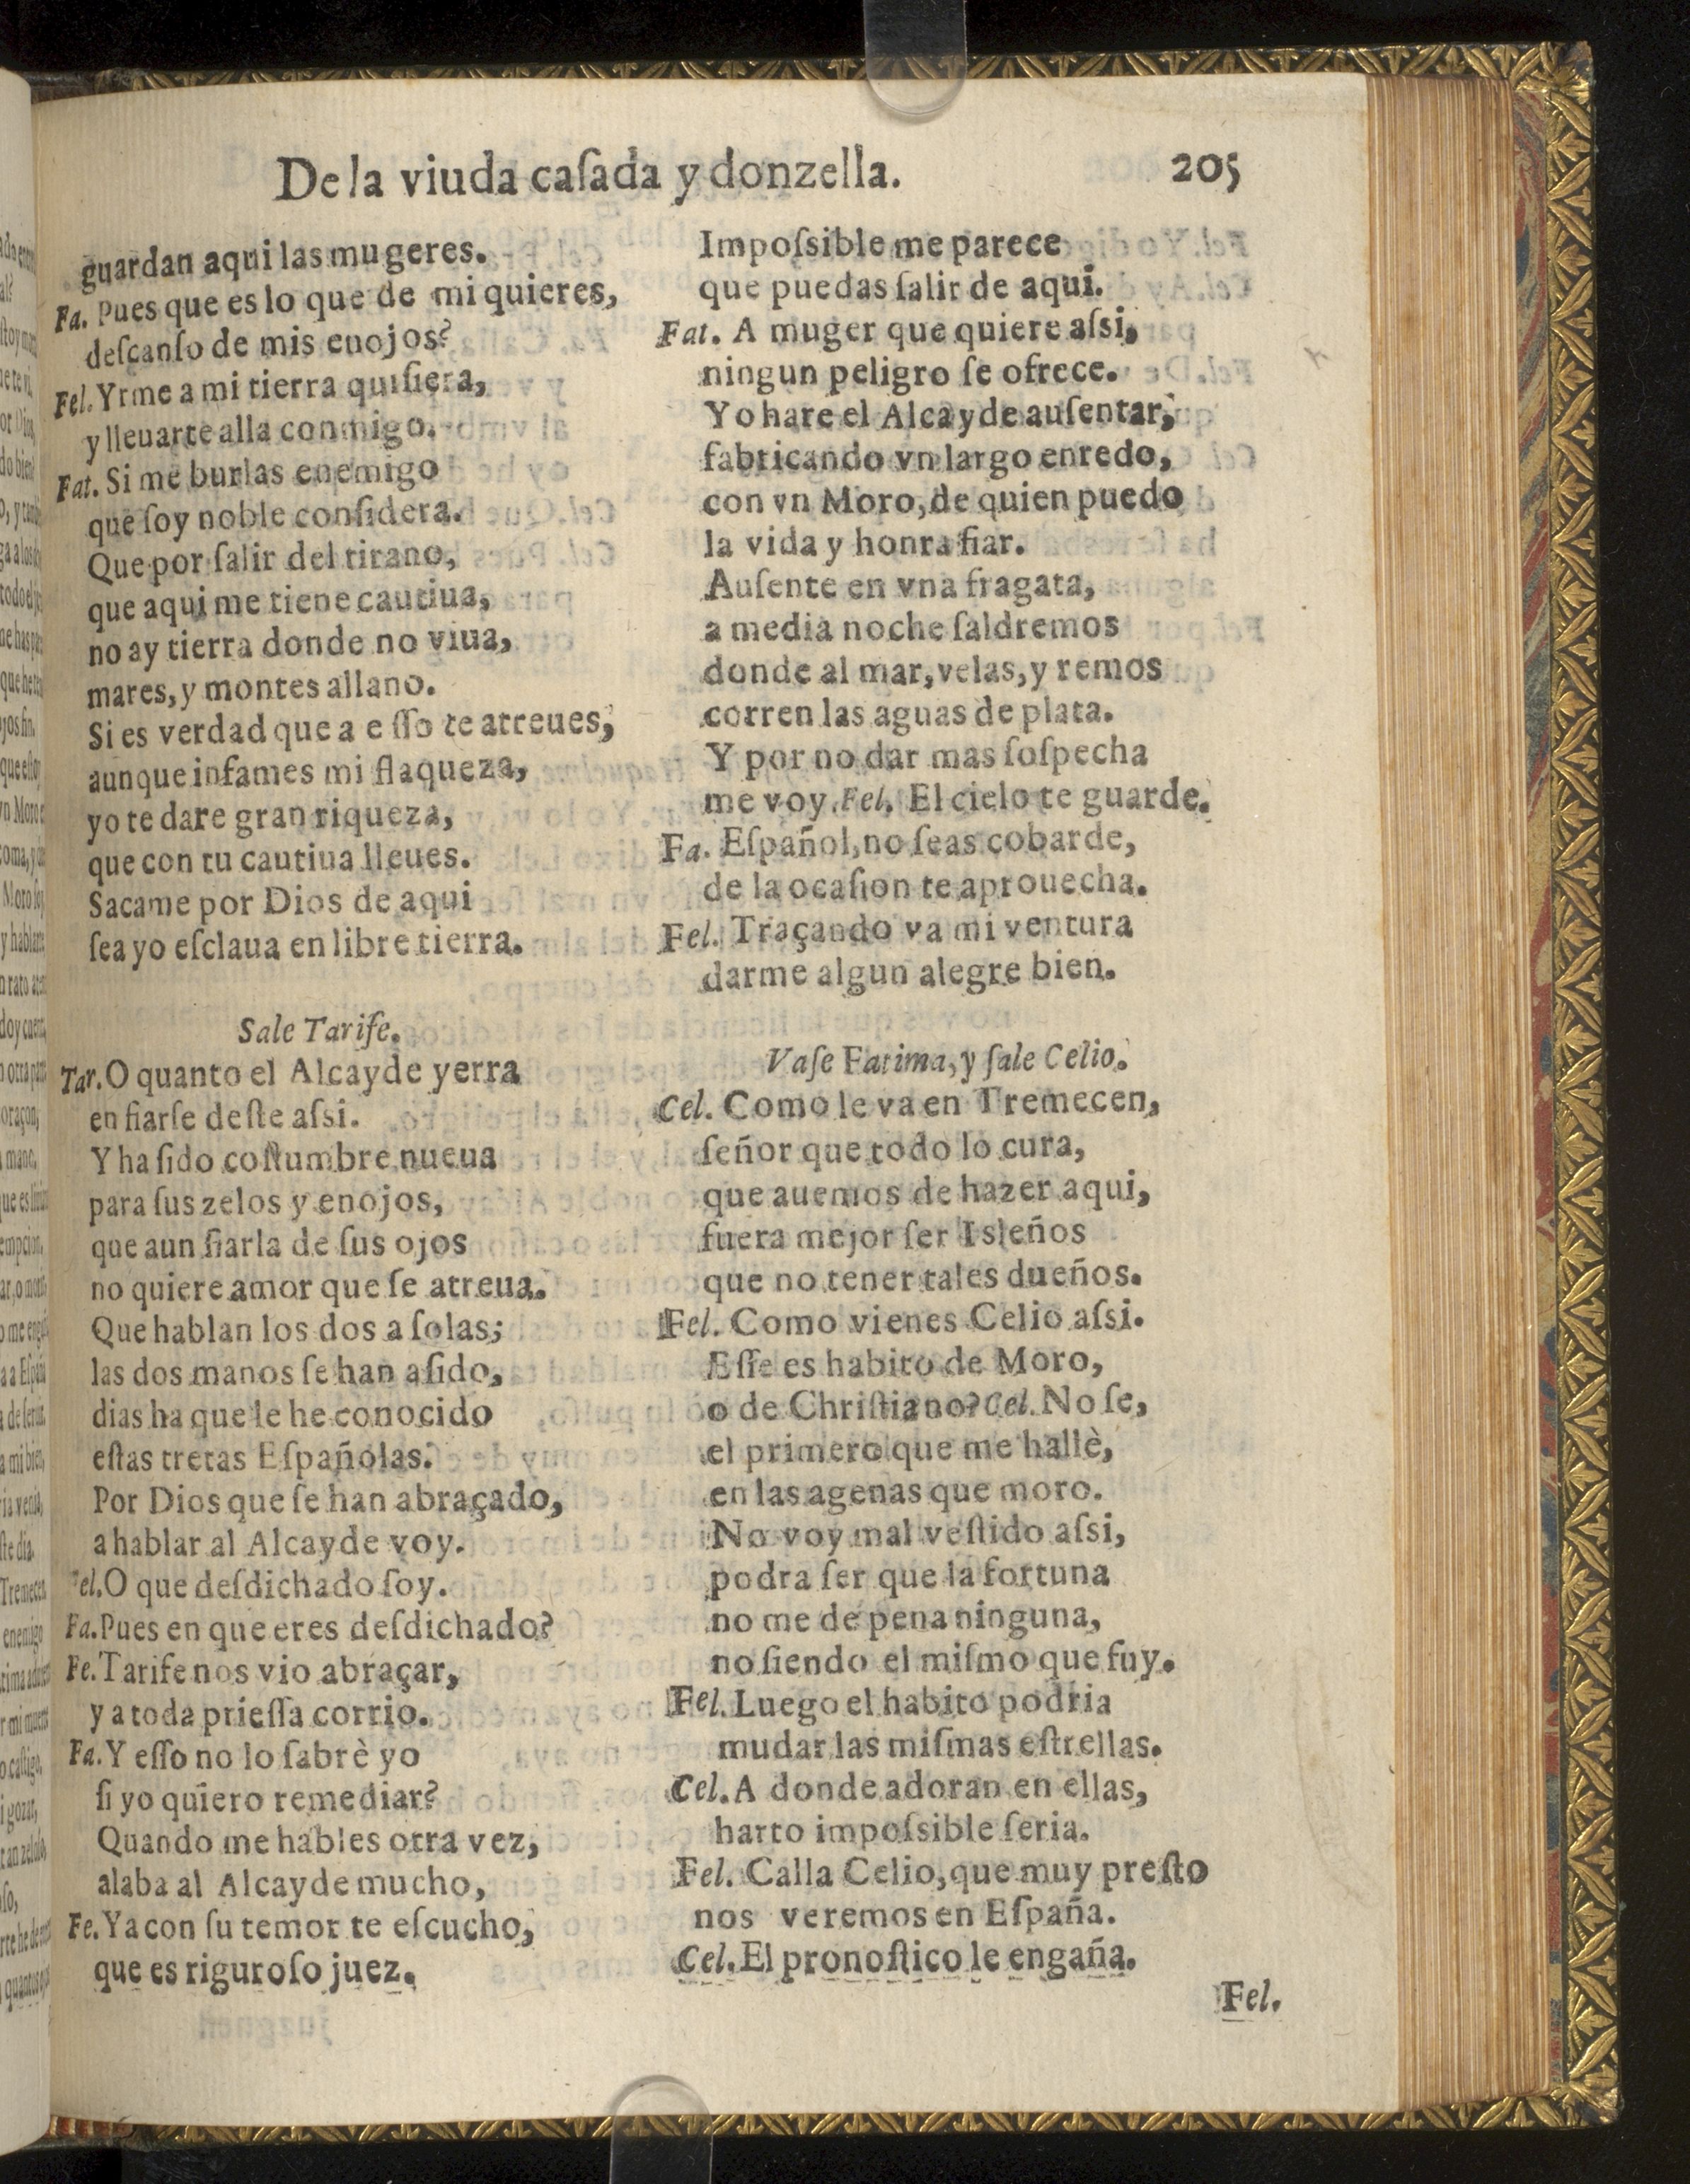 De la viuda caſada y donzella. 205
guardan aqui las mugeres.
Fa. Pues que es lo que de mi quieres,
deſcanſo de mis enojos?
Fel. Yrme a mi tierra quiſiera,
y lleuarte alla conmigo.
Fat. Si me burlas enemigo
que ſoy noble conſidera.
Que por ſalir del tirano,
que aqui me tiene cautiua,
no ay tierra donde no viua,
mares, y montes allano.
Si es verdad que a eſſo te atreues,
aunque infames mi flaqueza,
yo te dare gran riqueza,
que con tu cautiua lleues.
Sacame por Dios de aqui
ſea yo eſclaua en libre tierra.
Sale Tarife.
Tar. O quanto el Alcayde yerra
en fiarſe deſte aſsi.
Y ha ſido coſtumbre nueua
para ſus zelos y enojos,
que aun fiarla de ſus ojos
no quiere amor que ſe atreua.
Que hablan los dos a ſolas;
las dos manos ſe han aſido,
dias ha que le he conocido
eſtas tretas Eſpañolas.
Por Dios que ſe han abraçado,
a hablar al Alcayde voy.
Fel. O que deſdichado ſoy.
Fa. Pues en que eres deſdichado?
Fe. Tarife nos vio abraçar,
y a toda prieſſa corrio.
Fa. Y eſſo no lo ſabrè yo
ſi yo quiero remediar?
Quando me hables otra vez,
alaba al Alcayde mucho,
Fe. Ya con ſu temor te eſcucho,
que es riguroſo juez.
Impoſsible me parece
que puedas ſalir de aqui.
Fat. A muger que quiere aſsi,
ningun peligro ſe ofrece.
Yo hare el Alcayde auſentar,
fabricando vn largo enredo,
con vn Moro, de quien puedo
la vida y honra fiar.
Auſente en vna fragata,
a media noche ſaldremos
donde al mar, velas, y remos
corren las aguas de plata.
Y por no dar mas ſoſpecha
me voy. Fel. El cielo te guarde.
Fa. Eſpañol, no ſeas cobarde,
de la ocaſion te aprouecha.
Fel. Traçando va mi ventura
darme algun alegre bien.
Vaſe Fatima, y ſale Celio.
Cel. Como le va en Tremecen,
ſeñor que todo lo cura,
que auemos de hazer aqui,
fuera mejor ſer Isleños
que no tener tales dueños.
Fel. Como vienes Celio aſsi.
Eſſe es habito de Moro,
o de Chriſtiano? Cel. No ſe,
el primero que me hallè,
en las agenas que moro.
No voy mal veſtido aſsi,
podra ſer que la fortuna
no me de pena ninguna,
no ſiendo el miſmo que fuy.
Fel. Luego el habito podria
mudar las miſmas eſtrellas.
Cel. A donde adoran en ellas,
harto impoſsible ſeria.
Fel. Calla Celio, que muy preſto
nos veremos en Eſpaña.
Cel. El pronoſtico le engaña.
Fel.